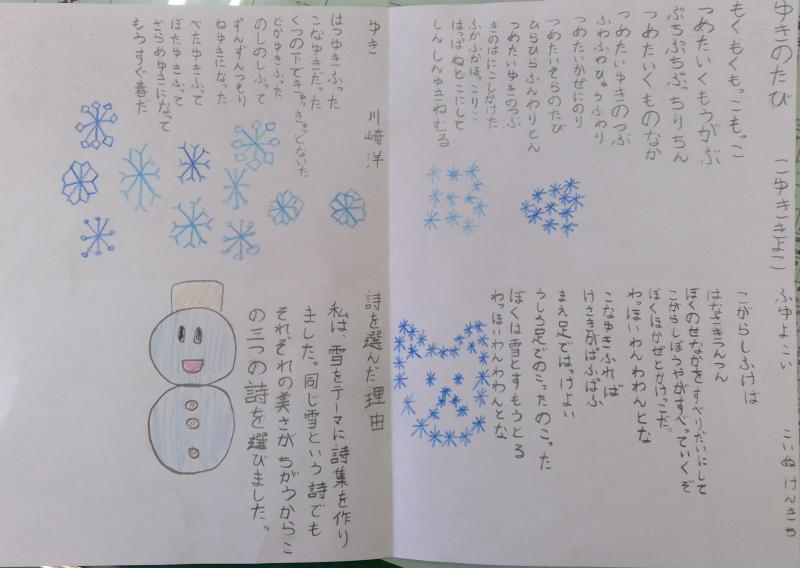 ゆきのたび　こゆききよこ
もくもくもっこもっこ
つめたいくもうかぶ
ぷちぷちぷっちりちん
つめたいくものなか
つめたいゆきのつぶ
ふわふわひゅうふわり
つめたいかぜにのり
つめたいそらのたび
ひらひらふんわりとん
つめたいゆきのつぶ
きのはにこしかけた
ふかふかほっこりこ
はっぱねどこにして
しんしんゆきねむる
ふゆよこい　こいぬけんきち
こがらしふけば
はなさきつんつん
ぼくのせなかをすべりだいにして
こがらしぼうやがすべっていくぞ
ぼくほかぜとかけっこだ。
わっほいわんわわんとな
こなゆきふれば
けさきがぱふぱふ
まえ足ではっけよい
うしろ足でのこったのこった
ぼくは雪とすもうとる
わっほいわんわわんとな
ゆき　川崎洋
はつゆきふった
こなゆきだった
くつの下できゅっきゅっとないた
どかゆきふった
のしのしふって
ずんずんつもり
ねゆきになった
べたゆきふって
ぼたゆきふって
ざらめゆきになって
もうすぐ春だ
詩を選んだ理由
私は、雪をテーマに詩集を作り
ました。同じ雪という詩でも
それぞれの美さがちがうからこ
の三つの詩を選びました。